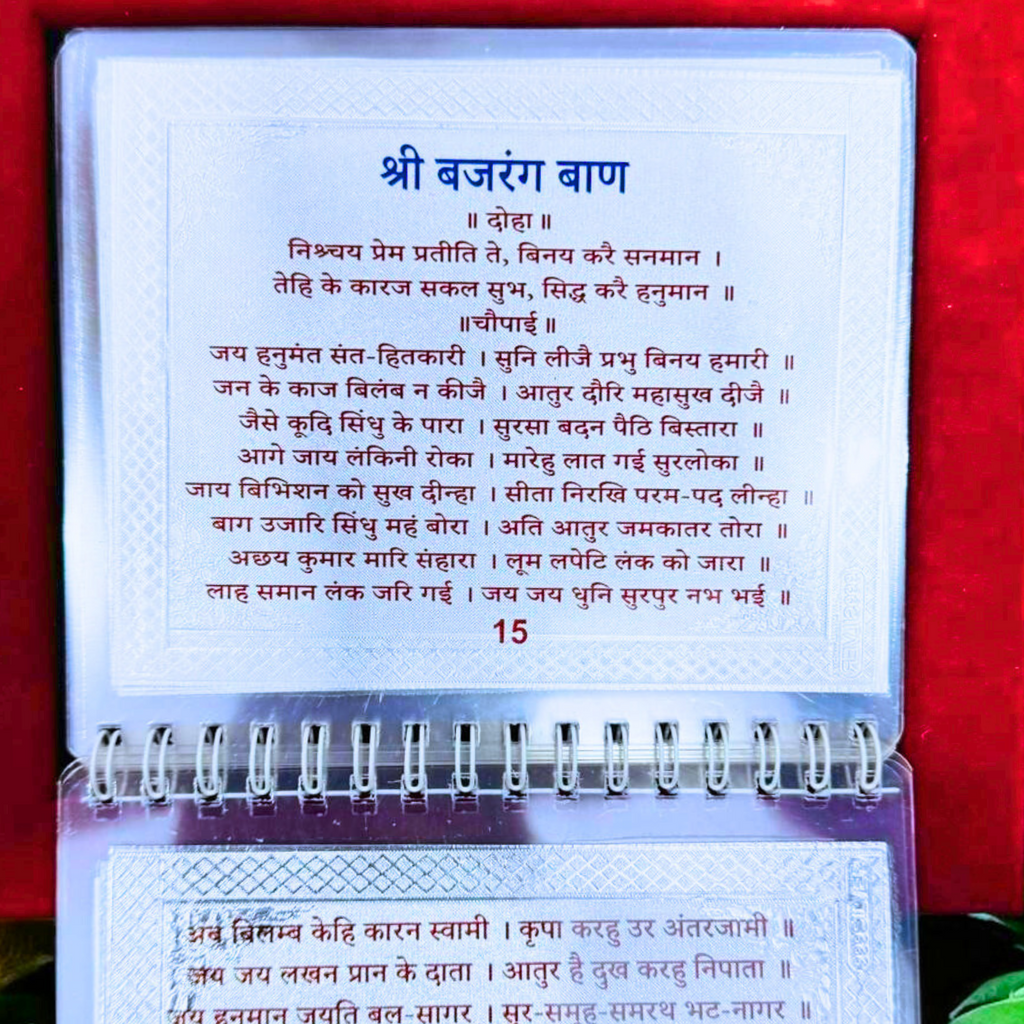 श्री बजरंग बाण
॥ दोहा ॥
निश्चय प्रेम प्रतीति ते, बिनय करै सनमान ।
तेहि के कारज सकल सुभ, सिद्ध करै हनुमान ॥
॥चौपाई॥
जय हनुमंत संत-हितकारी । सुनि लीजै प्रभु बिनय हमारी ॥
जन के काज बिलंब न कीजै । आतुर दौरि महासुख दीजै ॥
जैसे कूदि सिंधु के पारा । सुरसा बदन पैठि बिस्तारा ॥
आगे जाय लंकिनी रोका । मारेहु लात गई सुरलोका ॥
जाय बिभिशन को सुख दीन्हा । सीता निरखि परम-पद लीन्हा ॥
बाग उजारि सिंधु महं बोरा । अति आतुर जमकातर तोरा ॥
अछय कुमार मारि संहारा । लूम लपेटि लंक को जारा ॥
लाह समान लंक जरि गई । जय जय धुनि सुरपुर नभ भई ॥
15
अब बिलम्ब केहि कारन स्वामी । कृपा करहु उर अंतरजामी ॥
जय जय लखन प्रान के दाता । आतुर है दुख करहु निपाता ॥
जय हनुमान जयति बल-सागर । सुर-समूह-समरथ भट-नागर ॥